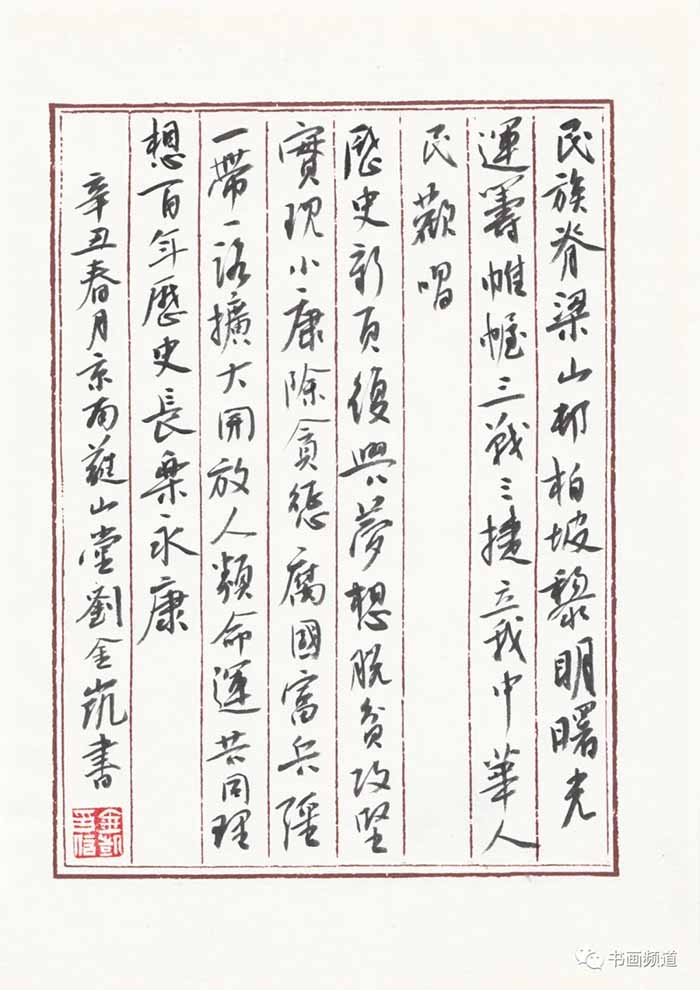 民族脊梁山邨柏坡黎明曙光
運籌帷幄三戰三捷立我中華人
民歡唱
歷史新頁復興夢想脱貧攻坚
實現小康除貪惩腐國富兵强
一帶一路擴大開放人類命運共同理
想百年歷史長樂永康
辛丑春月京南蘿山堂劉金凯書
金凱手信
书画频道